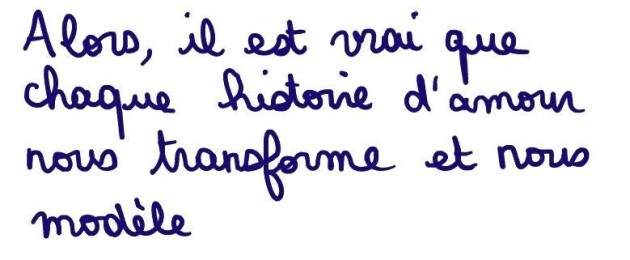 Alors, il est vrai que
chaque histoire d'amour
nous transforme et nous
modèle